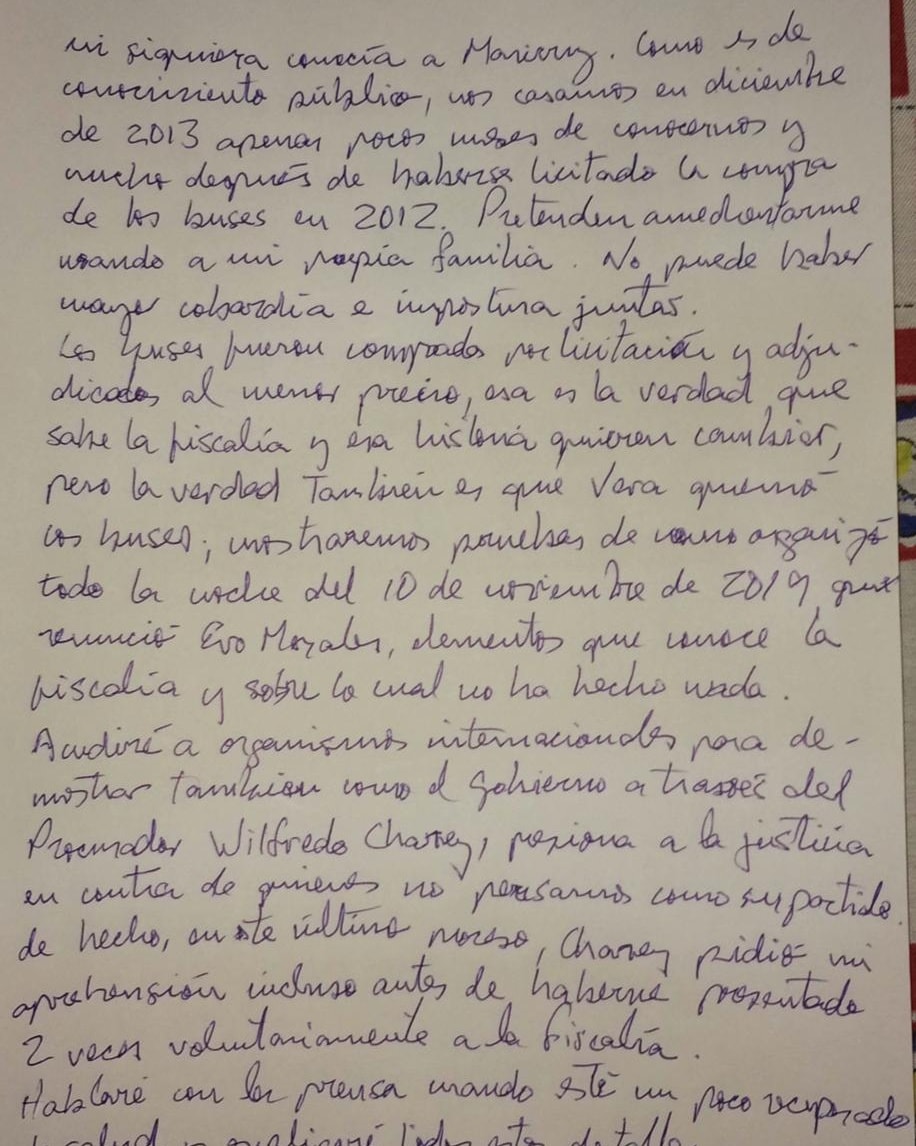 ni siquiera conocía a Maricruz. Como es de
conocimiento público, nos casamos en diciembre
de 2013 apenas pocos meses de conocernos y
mucho después de haberse licitado la compra
de los buses en 2012. Pretenden amedrentarme
usando a mi propia familia. No puede haber
mayor cobardía e impostura juntas.
Los buses fueron comprados por licitación y adju-
dicados al menor precio, esa es la verdad que
sabe la fiscalía y esa historia quieren cambiar,
pero la verdad También es que Vera quemó
los buses; mostraremos pruebas de como organizó
todo la noche del 10 de noviembre de 2019 que
renunció Evo Morales, elementos que conoce la
fiscalía y sobre lo cual no ha hecho nada.
Acudiré a organismos internacionales para de-
mostrar Tambien como el Gobierno a través del
Procurador Wilfredo Chavez, presiona a la justicia
en contra de quienes no pensamos como su partido.
de hecho, en este último proceso, Chavez pidió mi
aprehensión incluso antes de haberme presentado
2 veces voluntariamente a la fiscalía.
Hablaré con la prensa cuando esté un poco recuperado
de salud y explicaré todo esto a detalle.